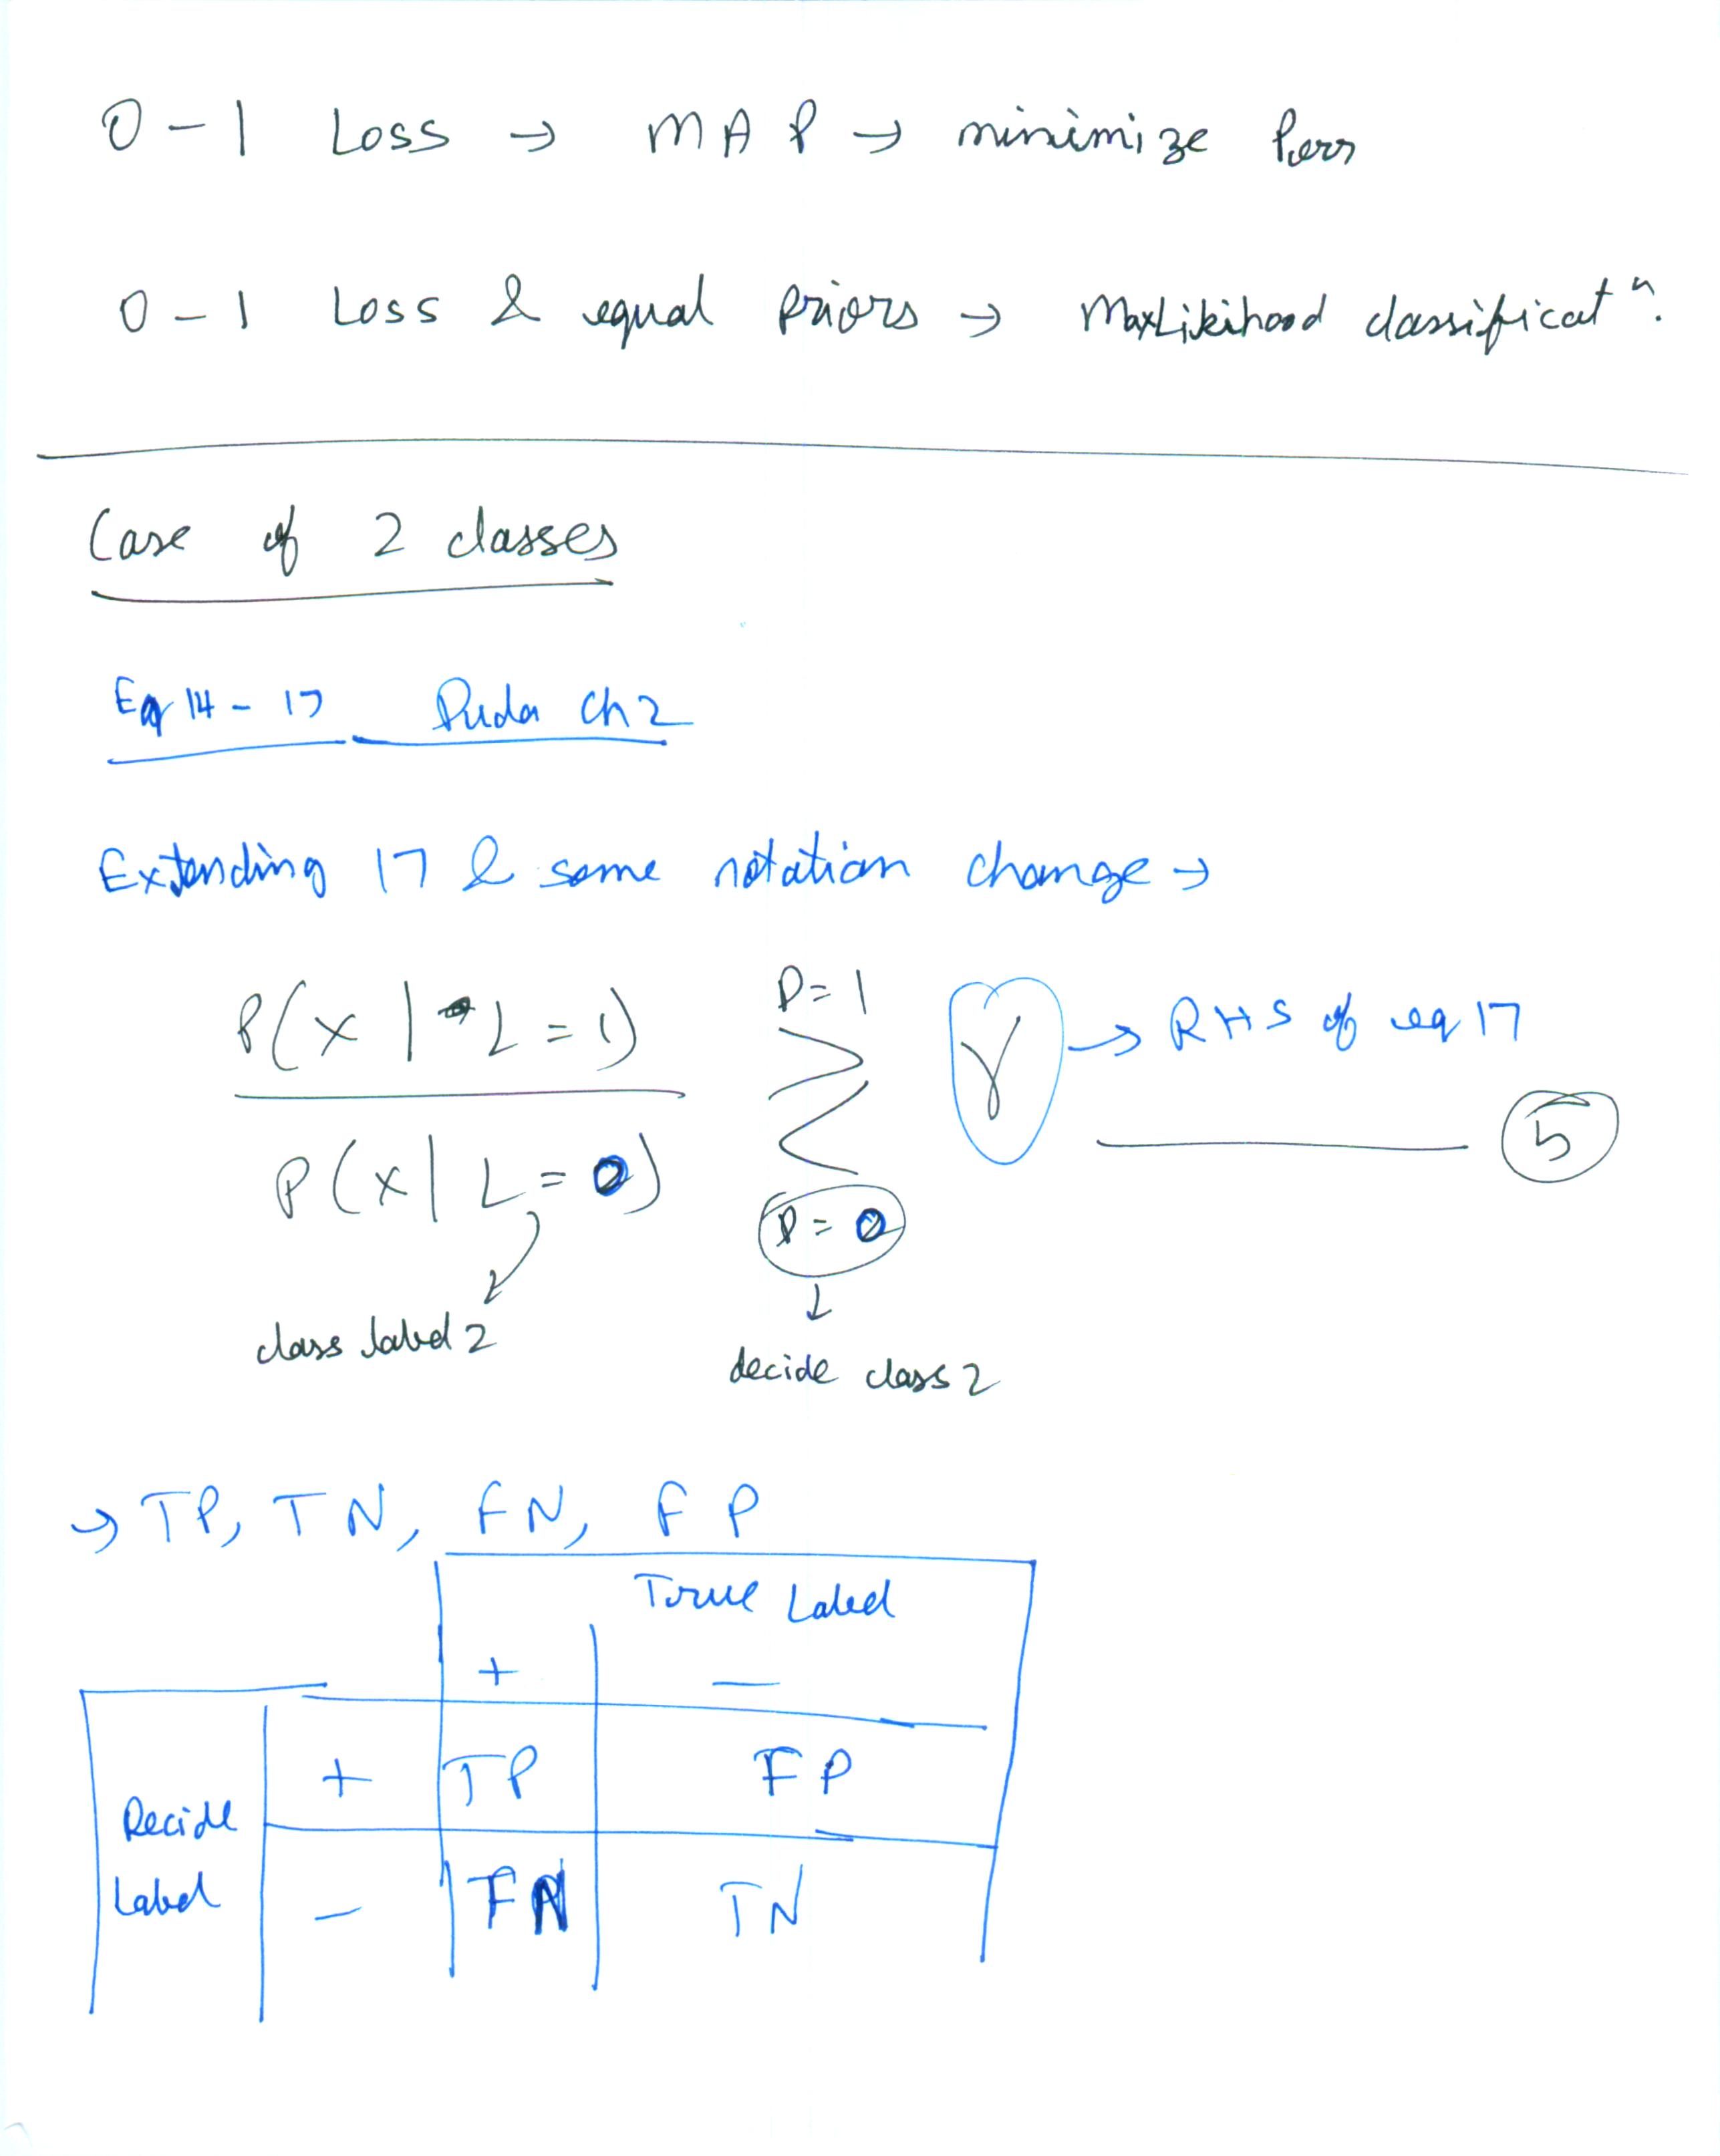 0-1 Loss → MAP → minimize Perr
0-1 Loss & equal priors → MaxLikihood classificatⁿ.
Case of 2 classes
Eq 14-17 Duda Ch 2
Extending 17 & some notation change →
P(x | L = 1) D = 1
> γ → RHS of eq 17
< 5
P(x | L = 0) D = 0
class label 2 decide class 2
→ TP, TN, FN, FP
True Label
+ -
+ TP FP
Decide
Label - FN TN